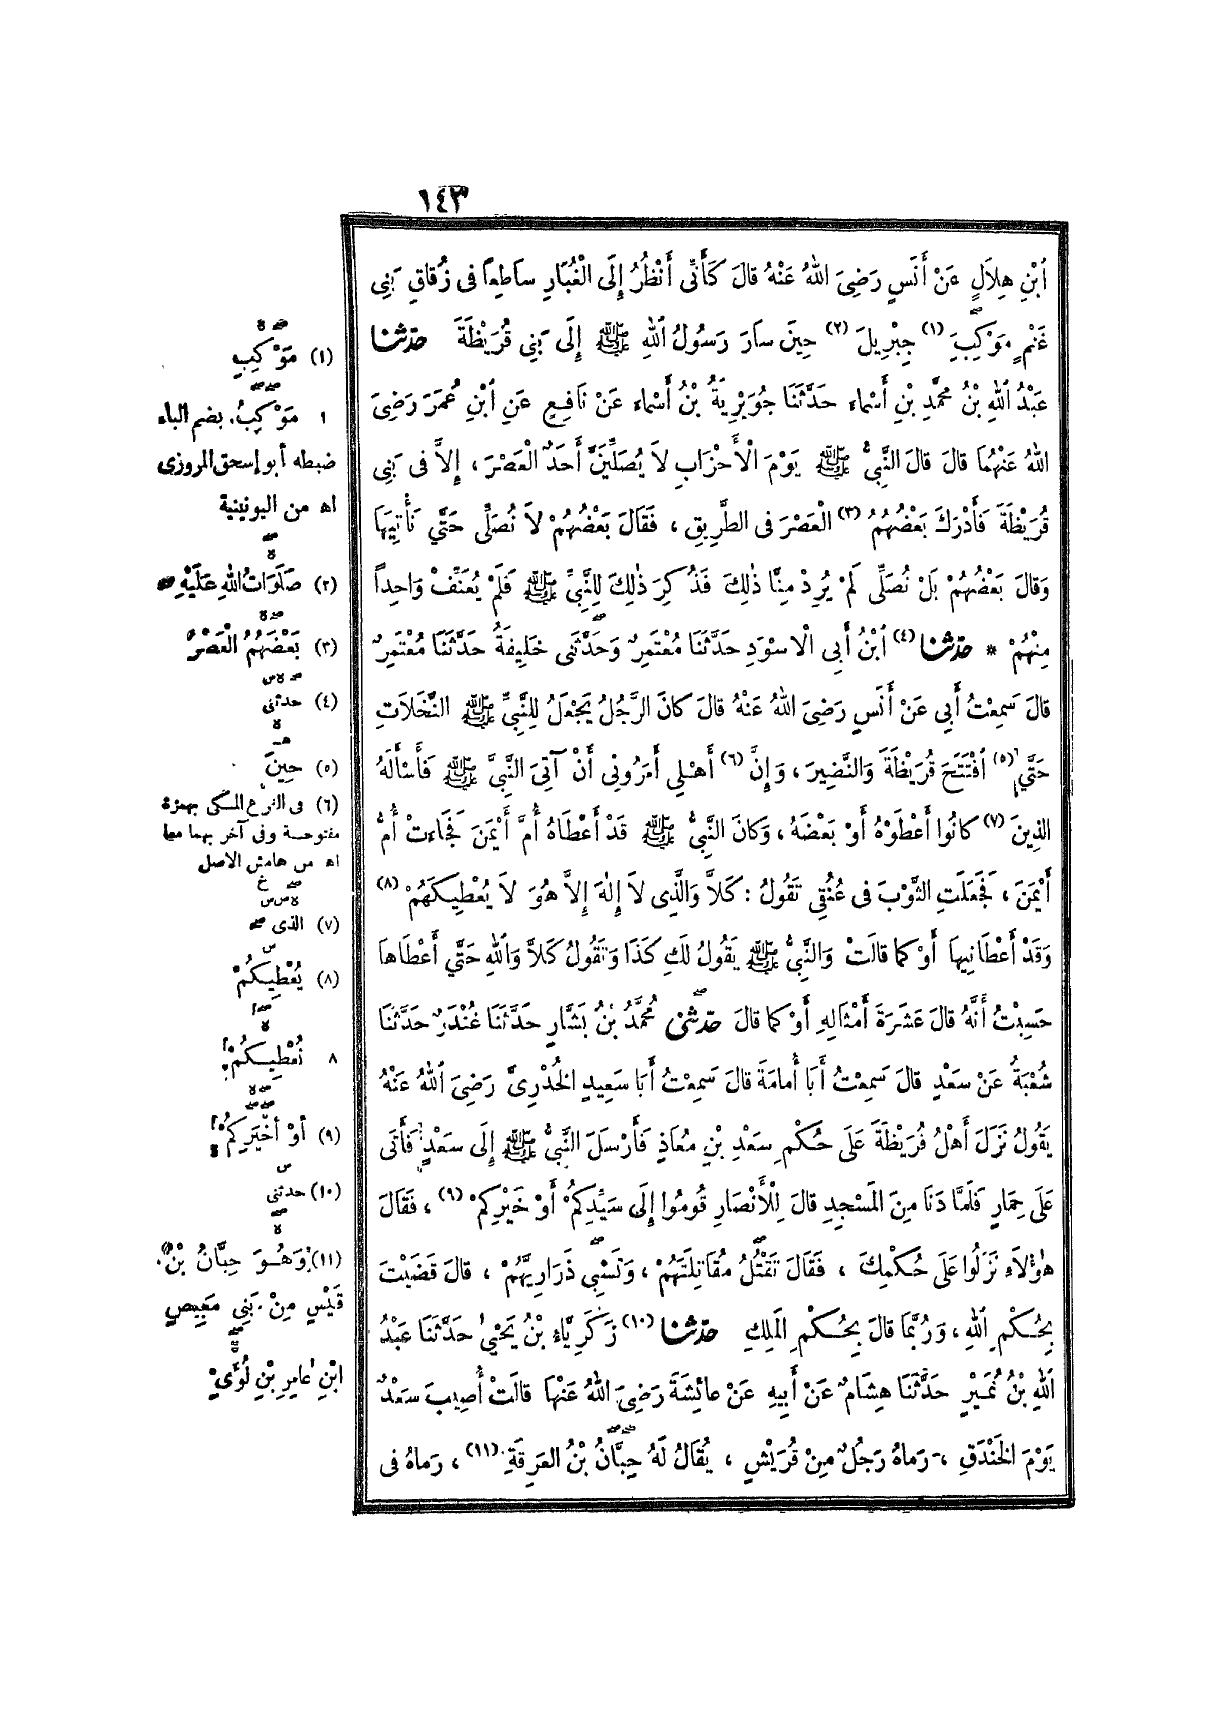 ١٤٣
ابْنِ هِلَالٍ عَنْ أَنَسٍ رَضِيَ اللهُ عَنْهُ قالَ كَأَنِّي أَنْظُرُ إِلَى الْغُبَارِ ساطِعاً فى زُقاقِ بَنِي
غَنْمٍ مَوْكِبَِ (١) جِبْرِيلَ (٢) حِينَ سارَ رَسُولُ اللهِ ﷺ إِلَى بَنِي قُرَيْظَةَ حَدَّثَنَا
عَبْدُ اللهِ بْنُ مُحَمَّدِ بْنِ أَسْماء حَدَّثَنَا جُوَيْرِيَةُ بْنُ أَسْماء عَنْ نَافِعٍ عَنِ ابْنِ عُمَرَ رَضِيَ
اللهُ عَنْهُمَا قالَ قالَ النَّبِيُّ ﷺ يَوْمَ الْأَحْزَابِ لاَ يُصَلِّيَنَّ أَحَدٌ الْعَصْرَ ، إِلاَّ فى بَنِي
قُرَيْظَةَ فَأَدْرَكَ بَعْضُهُمُ (٣) الْعَصْرَ فى الطَّرِيقِ ، فَقَالَ بَعْضُهُمْ لاَ نُصَلِّى حَتَّى نَأْتِيَهَا
وَقالَ بَعْضُهُمْ بَلْ نُصَلِّى لَمْ يُرِدْ مِنَّا ذٰلِكَ فَذُكِرَ ذٰلِكَ لِلنَّبِيِّ ﷺ فَلَمْ يُعَنِّفْ وَاحِداً
مِنْهُمْ * حَدَّثَنَا (٤) ابْنُ أَبِي الْاسْوَدِ حَدَّثَنَا مُعْتَمِرٌ وَحَدَّثَنِى خَلِيفَةُ حَدَّثَنَا مُعْتَمِرٌ
قالَ سَمِعْتُ أَبِي عَنْ أَنَسٍ رَضِيَ اللهُ عَنْهُ قالَ كانَ الرَّجُلُ يَجْعَلُ لِلنَّبِيِّ ﷺ النَّخَلَاتِ
حَتَّى (٥) افْتَتَحَ قُرَيْظَةَ وَالنَّضِيرَ ، وَإِنَّ (٦) أَهْلِي أَمَرُونِى أَنْ آتِيَ النَّبِيَّ ﷺ فَأَسْأَلَهُ
الذِينَ (٧) كانُوا أَعْطَوْهُ أَوْ بَعْضَهُ ، وَكانَ النَّبِيُّ ﷺ قَدْ أَعْطَاهُ أُمَّ أَيْمَنَ فَجَاءتْ أُمُّ
أَيْمَنَ ، فَجَعَلَتِ الثَّوْبَ فى عُنُقِي تَقُولُ : كَلاَّ وَالَّذِى لاَ إِلٰهَ إِلاَّ هُوَ لاَ يُعْطِيكَهُمْ (٨)
وَقَدْ أَعْطَانِيها أَوْ كما قالَتْ وَالنَّبِيُّ ﷺ يَقُولُ لَكِ كَذَا وَتَقُولُ كَلاَّ وَاللهِ حَتَّى أَعْطَاها
حَسِبْتُ أَنَّهُ قالَ عَشَرَةَ أَمْثَالِهِ أَوْ كما قالَ حَدَّثَنِى مُحَمَّدُ بْنُ بَشَّارٍ حَدَّثَنَا غُنْدَرٌ حَدَّثَنَا
شُعْبَةُ عَنْ سَعْدٍ قالَ سَمِعْتُ أَبَا أُمامَةَ قالَ سَمِعْتُ أَبَا سَعِيدٍ الخُدْرِىَّ رَضِيَ اللهُ عَنْهُ
يَقُولُ نَزَلَ أَهْلُ قُرَيْظَةَ عَلَى حُكْمِ سَعْدِ بْنِ مُعَاذٍ فَأَرْسَلَ النَّبِيُّ ﷺ إِلَى سَعْدٍ فَأَتَى
عَلَى حِمَارٍ فَلَمَّا دَنَا مِنَ المَسْجِدِ قالَ لِلْأَنْصَارِ قُومُوا إِلَى سَيِّدِكُمْ أَوْ خَيْرِكِمْ (٩) ، فَقَالَ
هٰؤُلاَءِ نَزَلُوا عَلَى حُكْمِكَ ، فَقَالَ تَقْتُلُ مُقَاتِلَتَهُمْ ، وَتَسْبِى ذَرَارِيَّهُمْ ، قالَ قَضَيْتَ
بِحُكْمِ اللهِ ، وَرُبَّمَا قالَ بِحُكْمِ المَلِكِ حَدَّثَنَا (١٠) زَكَرِيَّاءِ بْنُ يَحْيٰى حَدَّثَنَا عَبْدُ
اللهِ بْنُ نُمَيْرٍ حَدَّثَنَا هِشَامٌ عَنْ أَبِيهِ عَنْ عائِشَةَ رَضِيَ اللهُ عَنْها قالَتْ أُصِيبَ سَعْدٌ
يَوْمَ الخَنْدَقِ ، رَماهُ رَجُلٌ مِنْ قُرَيْشٍ ، يُقَالُ لَهُ حِبَّانُ بْنُ الْعَرِقَةِ (١١) ، رَماهُ فى
(١) مَوْكِبِ
١ مَوْكِبُ. بضم الباء
ضبطه أبو إسحق المروزى
اه من اليونينية
(٢) صَلَوَاتُ اللهِ عَلَيْهِ
(٣) بَعْضَهُمُ الْعَصْرُ
(٤) حدثنى
(٥) حِينَ
(٦) فى الفرع المكى بهمزة
مفتوحة وفى آخر بهما معا
اه من هامش الاصل
(٧) الذى
(٨) يُعْطِيكُمْ
٨ نُعْطِيكُمْ
(٩) أَوْ أَخْيَرِكِمْ
(١٠) حدثنى
(١١) وَهُوَ حِبَّانُ بْنُ
قَيْسٍ مِنْ بَنِي مَعِيصِ
ابْنِ عامِرِ بْنِ لُؤَىٍّ